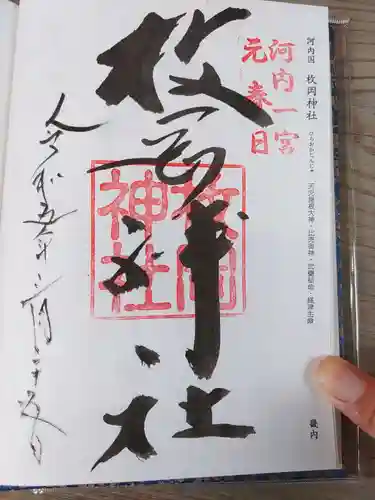 河内国 枚岡神社
ひらおかじんじゃ
天児屋根大神・比売御神・武甕槌命・経津主命
畿内
河内一宮
元春日
枚岡神社
枚岡
神社
令和五年三月二十五日